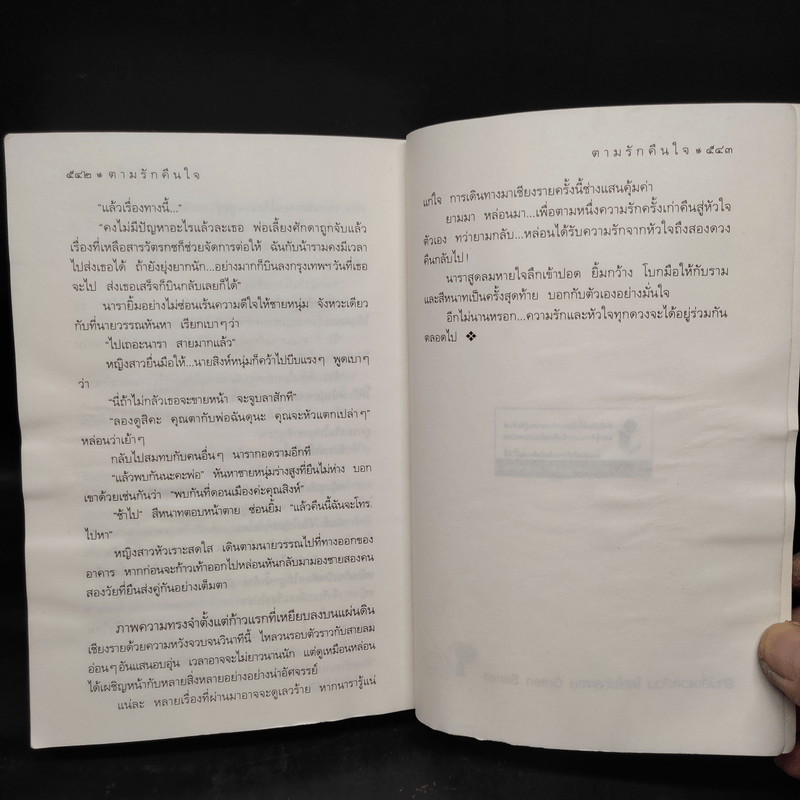 ๕๔๒ ๏ ตามรักคืนใจ
"แล้วเรื่องทางนี้..."
"คงไม่มีปัญหาอะไรแล้วละเธอ พ่อเลี้ยงศักดาถูกจับแล้ว
เรื่องที่เหลือสารวัตรกซก็ช่วยจัดการต่อให้ ฉันกับน้ารามคงมีเวลา
ไปส่งเธอได้ ถ้ายังยุ่งยากนัก...อย่างมากก็บินลงกรุงเทพฯ วันที่เธอ
จะไป ส่งเธอเสร็จก็บินกลับเลยก็ได้"
นารายิ้มอย่างไม่ซ่อนเร้นความดีใจให้ชายหนุ่ม จังหวะเดียว
กับที่นายวรรณหันหา เรียกเบาๆ ว่า
"ไปเถอะนารา สายมากแล้ว"
หญิงสาวยื่นมือให้...นายสิงห์หนุ่มก็คว้าไปบีบแรงๆ พูดเบาๆ
ว่า
"นี่ถ้าไม่กลัวเธอจะขายหน้า จะจูบลาสักที"
"ลองดูสิคะ คุณตากับพ่อฉันดุนะ คุณจะหัวแตกเปล่าๆ"
หล่อนว่าเย้าๆ
กลับไปสมทบกับคนอื่นๆ นารากอดรามอีกที
"แล้วพบกันนะคะพ่อ" หันหาชายหนุ่มร่างสูงที่ยืนไม่ห่าง บอก
เขาด้วยเช่นกันว่า "พบกันที่ดอนเมืองค่ะคุณสิงห์"
"ช้าไป" สีหนาทตอบหน้าตาย ซ่อนยิ้ม "แล้วคืนนี้ฉันจะโทร.
ไปหา"
หญิงสาวหัวเราะสดใส เดินตามนายวรรณไปที่ทางออกของ
อาคาร หากก่อนจะก้าวเท้าออกไปหล่อนหันกลับมามองชายสองคน
สองวัยที่ยืนส่งคู่กันอย่างเต็มตา
ภาพความทรงจำตั้งแต่ก้าวแรกที่เหยียบลงบนแผ่นดิน
เชียงรายด้วยความหวังจวบจนวินาทีนี้ ไหลวนรอบตัวราวกับสายลม
อ่อนๆ อันแสนอบอุ่น เวลาอาจจะไม่ยาวนานนัก แต่ดูเหมือนหล่อน
ได้เผชิญหน้ากับหลายสิ่งหลายอย่างอย่างน่าอัศจรรย์
แน่ละ หลายเรื่องที่ผ่านมาอาจจะดูเลวร้าย หากนารารู้แน่
ตามรักคืนใจ ๏ ๕๔๓
แก่ใจ การเดินทางมาเชียงรายครั้งนี้ช่างแสนคุ้มค่า
ยามมา หล่อนมา...เพื่อตามหนึ่งความรักครั้งเก่าคืนสู่หัวใจ
ตัวเอง ทว่ายามกลับ...หล่อนได้รับความรักจากหัวใจถึงสองดวง
คืนกลับไป!
นาราสูดลมหายใจลึกเข้าปอด ยิ้มกว้าง โบกมือให้กับราม
และสีหนาทเป็นครั้งสุดท้าย บอกกับตัวเองอย่างมั่นใจ
อีกไม่นานหรอก...ความรักและหัวใจทุกดวงจะได้อยู่ร่วมกัน
ตลอดไป ❖